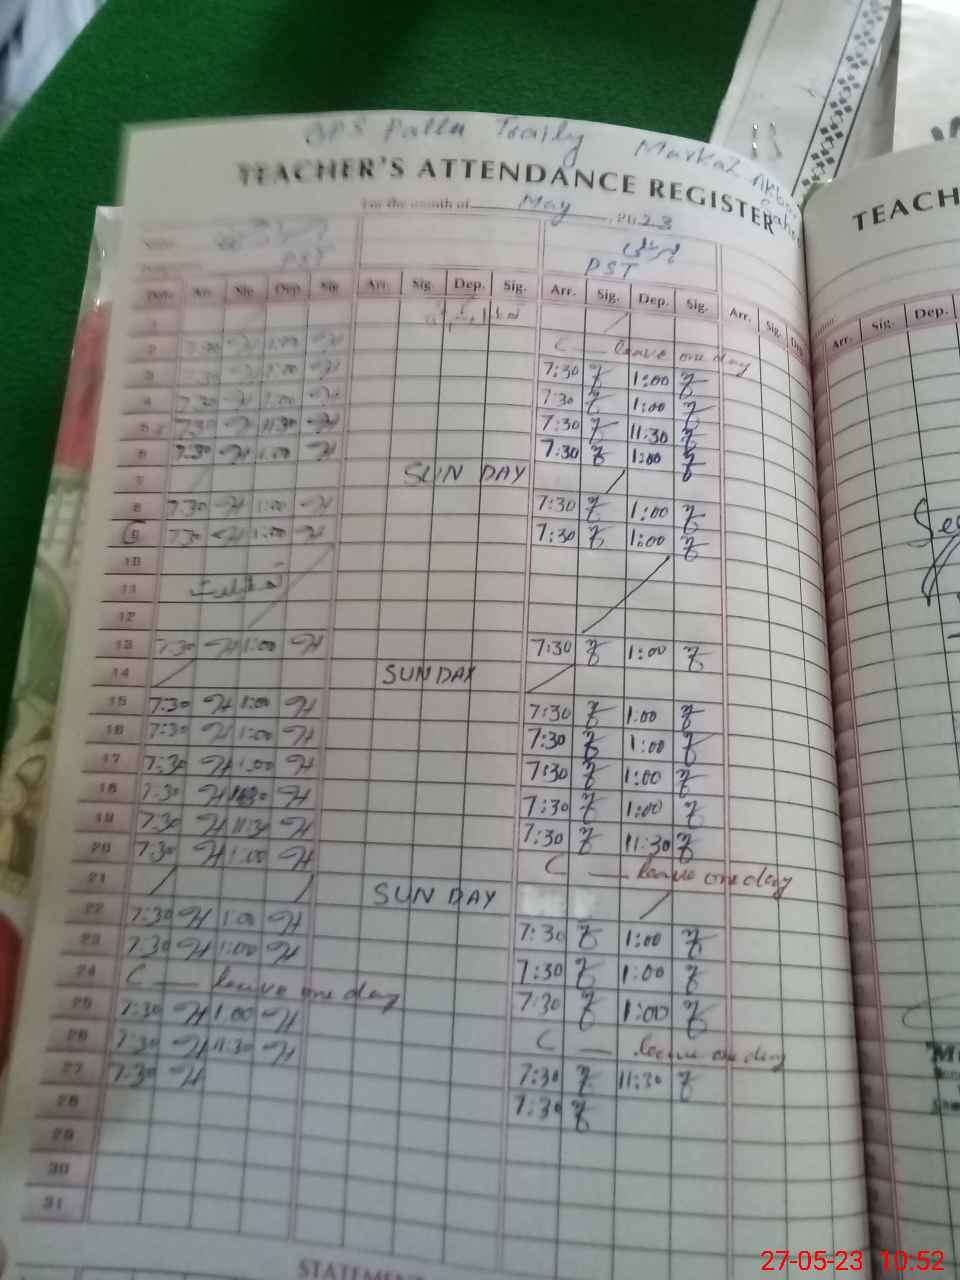 GPS Pattu Traily Markaz Akbar
TEACHER'S ATTENDANCE REGISTER
TEACH
For the month of May, 2023
PST PST
Date Arr. Sig. Dep. Sig. Arr. Sig. Dep. Sig. Arr. Sig. Dep. Sig. Arr. Sig.
Arr. Sig. Dep.
1
2 7:30 1:00 C — leave one day
3 7:30 1:00 7:30 1:00
4 7:30 1:00 7:30 1:00
5 7:30 11:30 7:30 11:30
6 7:30 1:00 7:30 1:00
7 SUNDAY
8 7:30 1:00 7:30 1:00
9 7:30 1:00 7:30 1:00
10
11
12
13 7:30 1:00 7:30 1:00
14 SUNDAY
15 7:30 1:00 7:30 1:00
16 7:30 1:00 7:30 1:00
17 7:30 1:00 7:30 1:00
18 7:30 7:30 1:00
19 7:30 11:30 7:30 11:30
20 7:30 1:00 C — leave one day
21 SUNDAY
22 7:30 1:00 7:30 1:00
23 7:30 1:00 7:30 1:00
24 C — leave one day 7:30 1:00
25 7:30 1:00 C — leave one day
26 7:30 11:30 7:30 11:30
27 7:30 7:30
28
29
30
31
STATEMENT
27-05-23 10:52